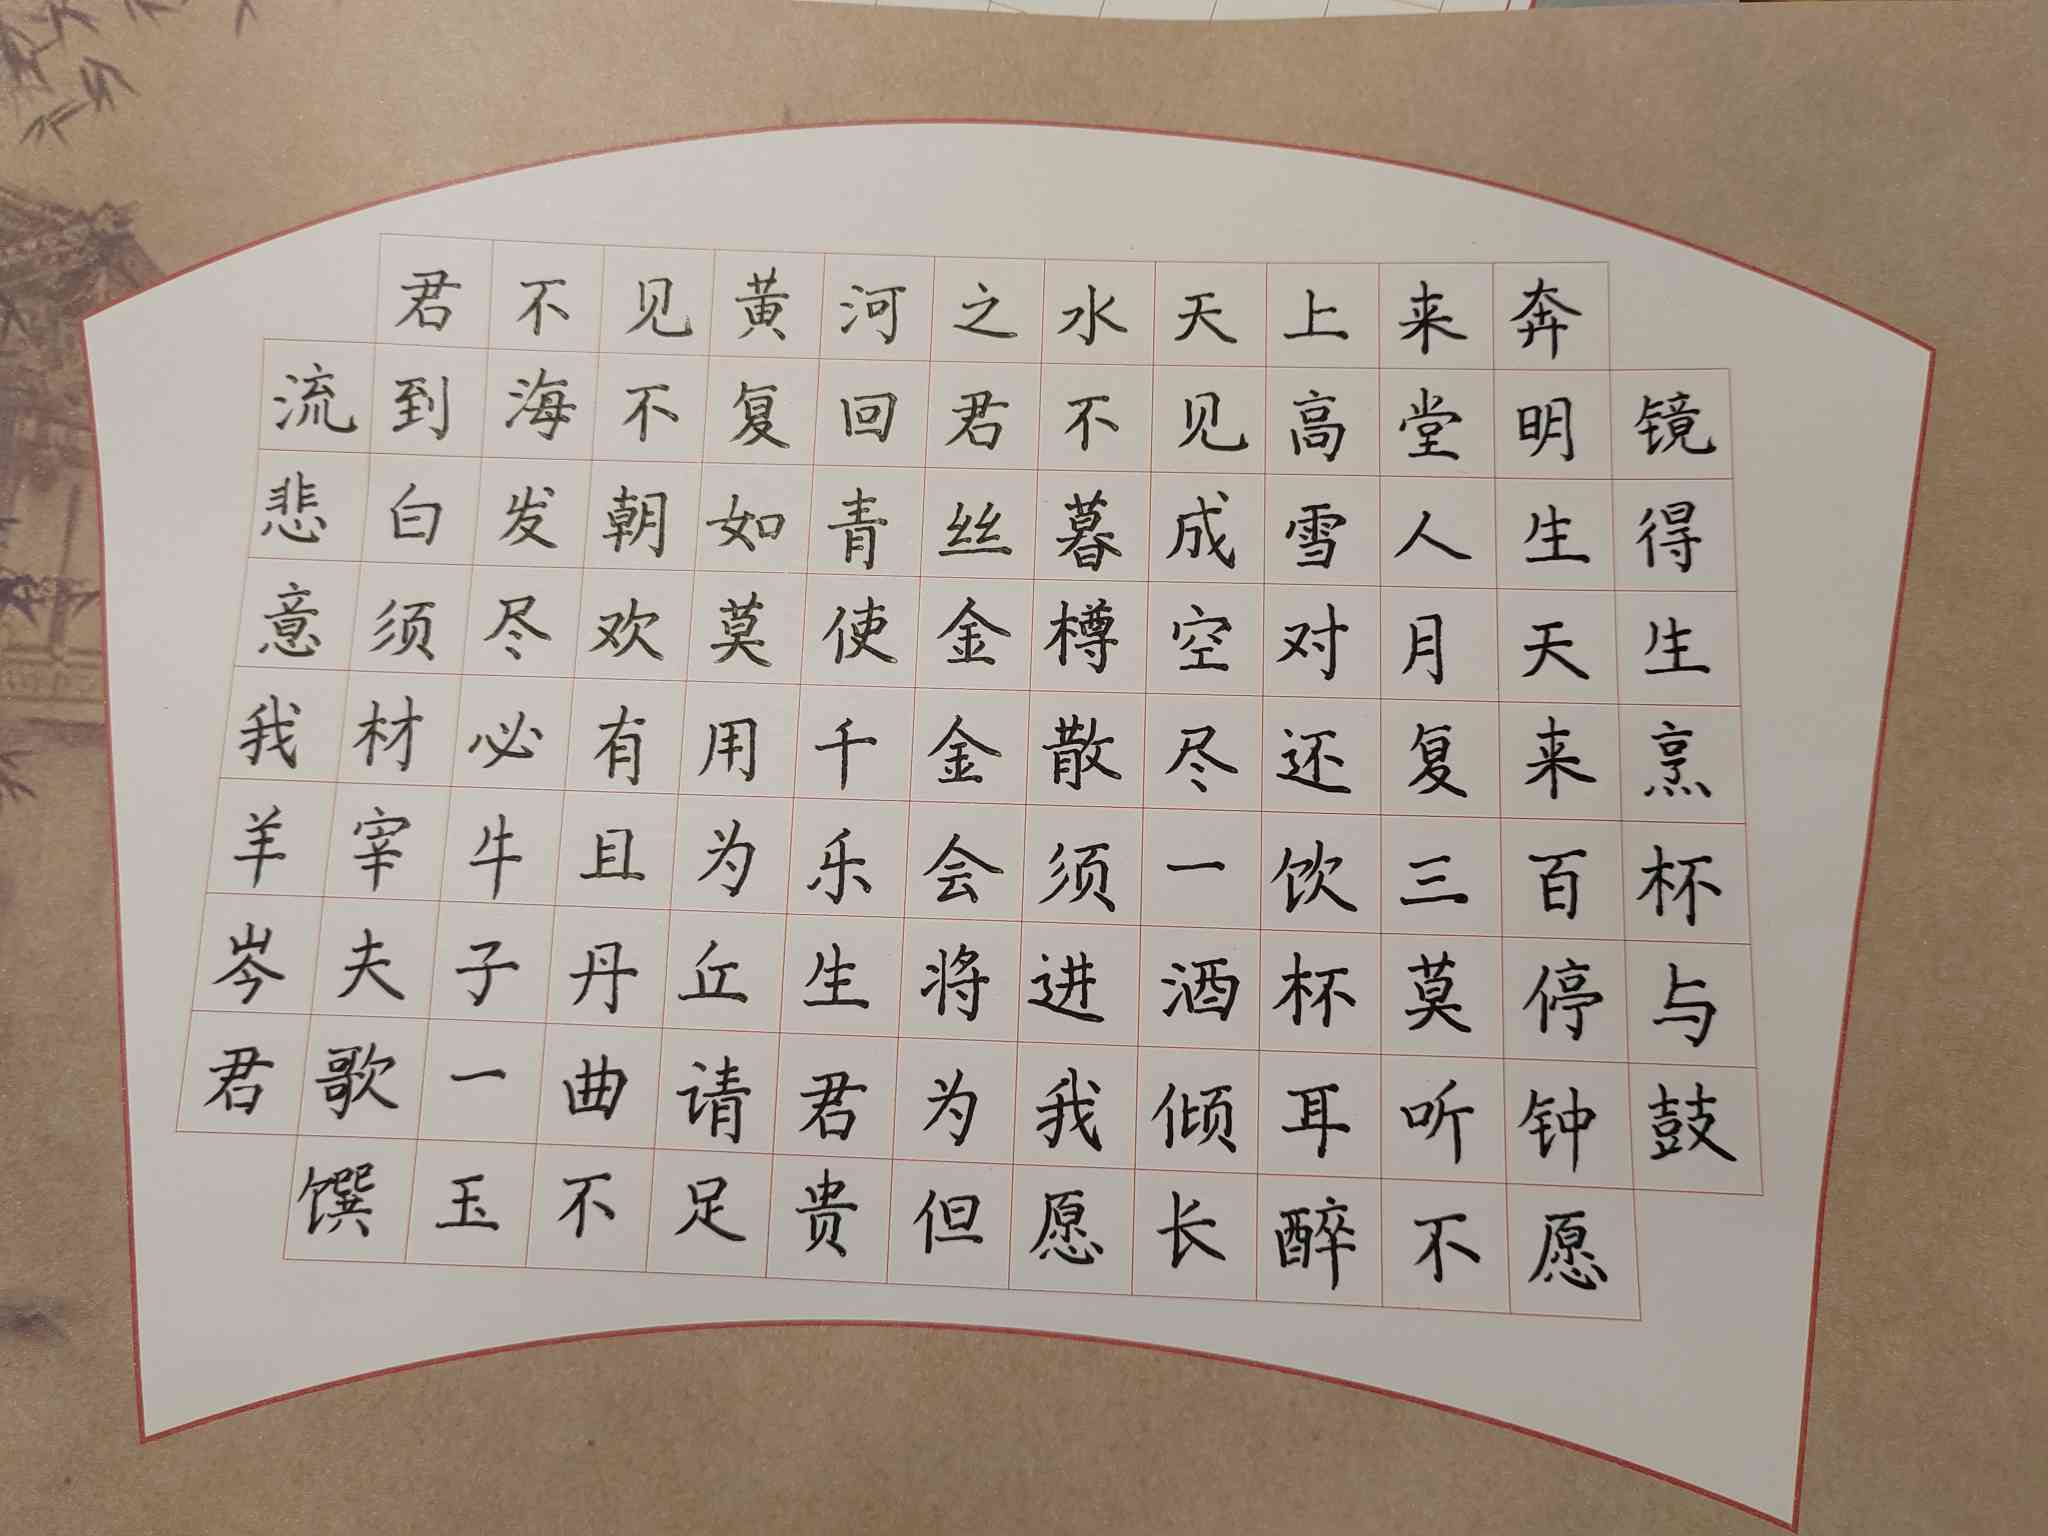 君不见黄河之水天上来奔
流到海不复回君不见高堂明镜
悲白发朝如青丝暮成雪人生得
意须尽欢莫使金樽空对月天生
我材必有用千金散尽还复来烹
羊宰牛且为乐会须一饮三百杯
岑夫子丹丘生将进酒杯莫停与
君歌一曲请君为我倾耳听钟鼓
馔玉不足贵但愿长醉不愿